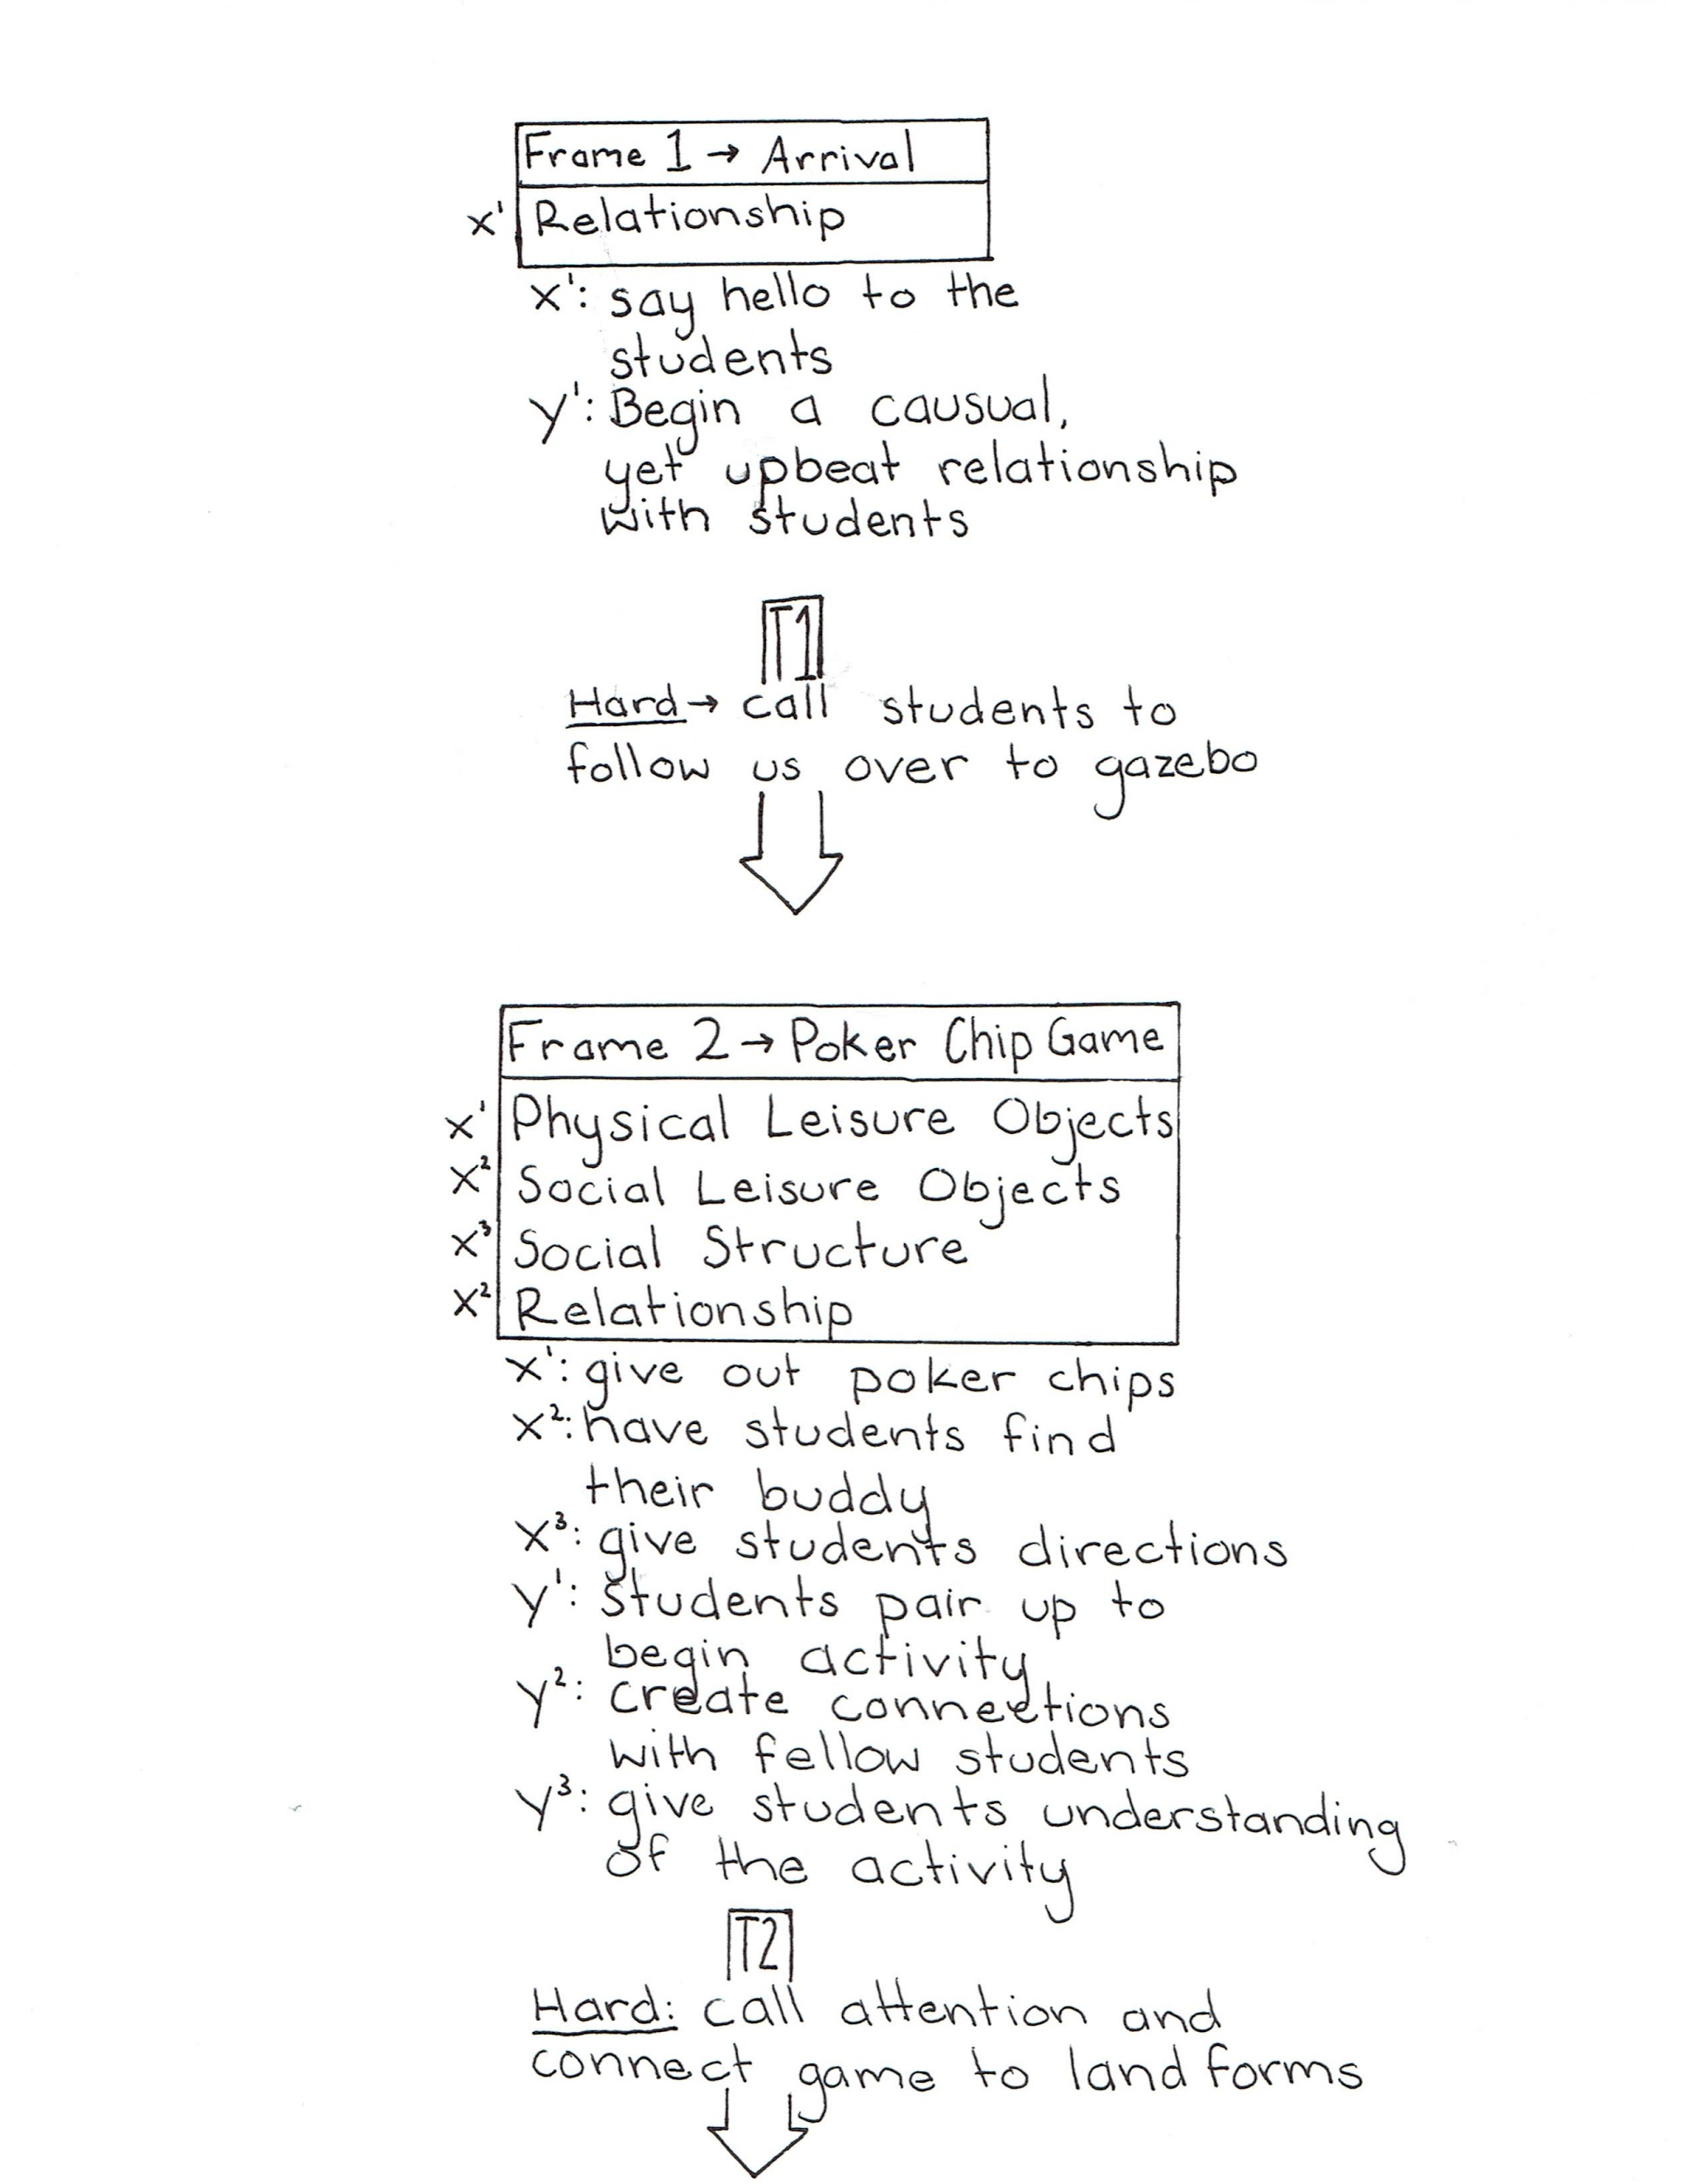 Frame 1 → Arrival
x¹ Relationship
x¹: say hello to the
students
y¹: Begin a causual,
yet upbeat relationship
with students
T1
Hard → call students to
follow us over to gazebo
Frame 2 → Poker Chip Game
x¹ Physical Leisure Objects
x² Social Leisure Objects
x³ Social Structure
x² Relationship
x¹: give out poker chips
x²: have students find
their buddy
x³: give students directions
y¹: students pair up to
begin activity
y²: create connections
with fellow students
y³: give students understanding
of the activity
T2
Hard: call attention and
connect game to land forms